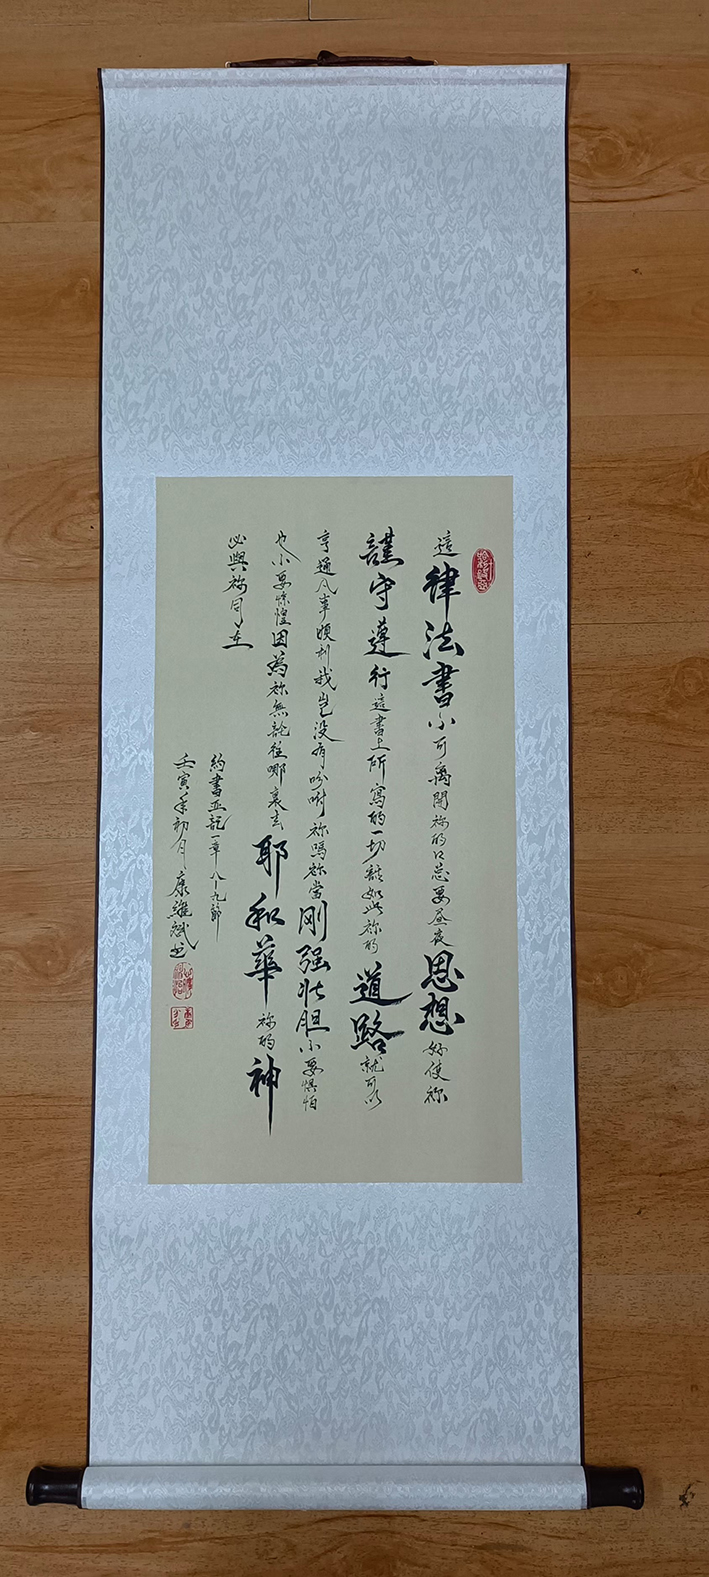 這律法書不可離開祢的口總要晝夜思想好使祢
謹守遵行這書上所寫的一切話如此祢的道路就可以
亨通凡事順利我豈没有吩咐祢嗎祢當刚强壯胆不要懼怕
也不要驚惶因為祢無論往哪裏去耶和華祢的神
必與祢同在
約書亞記一章八~九節
壬寅年初月康維斌书